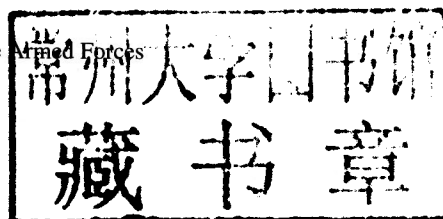 Armed Forces
常州大学图书馆
藏书章